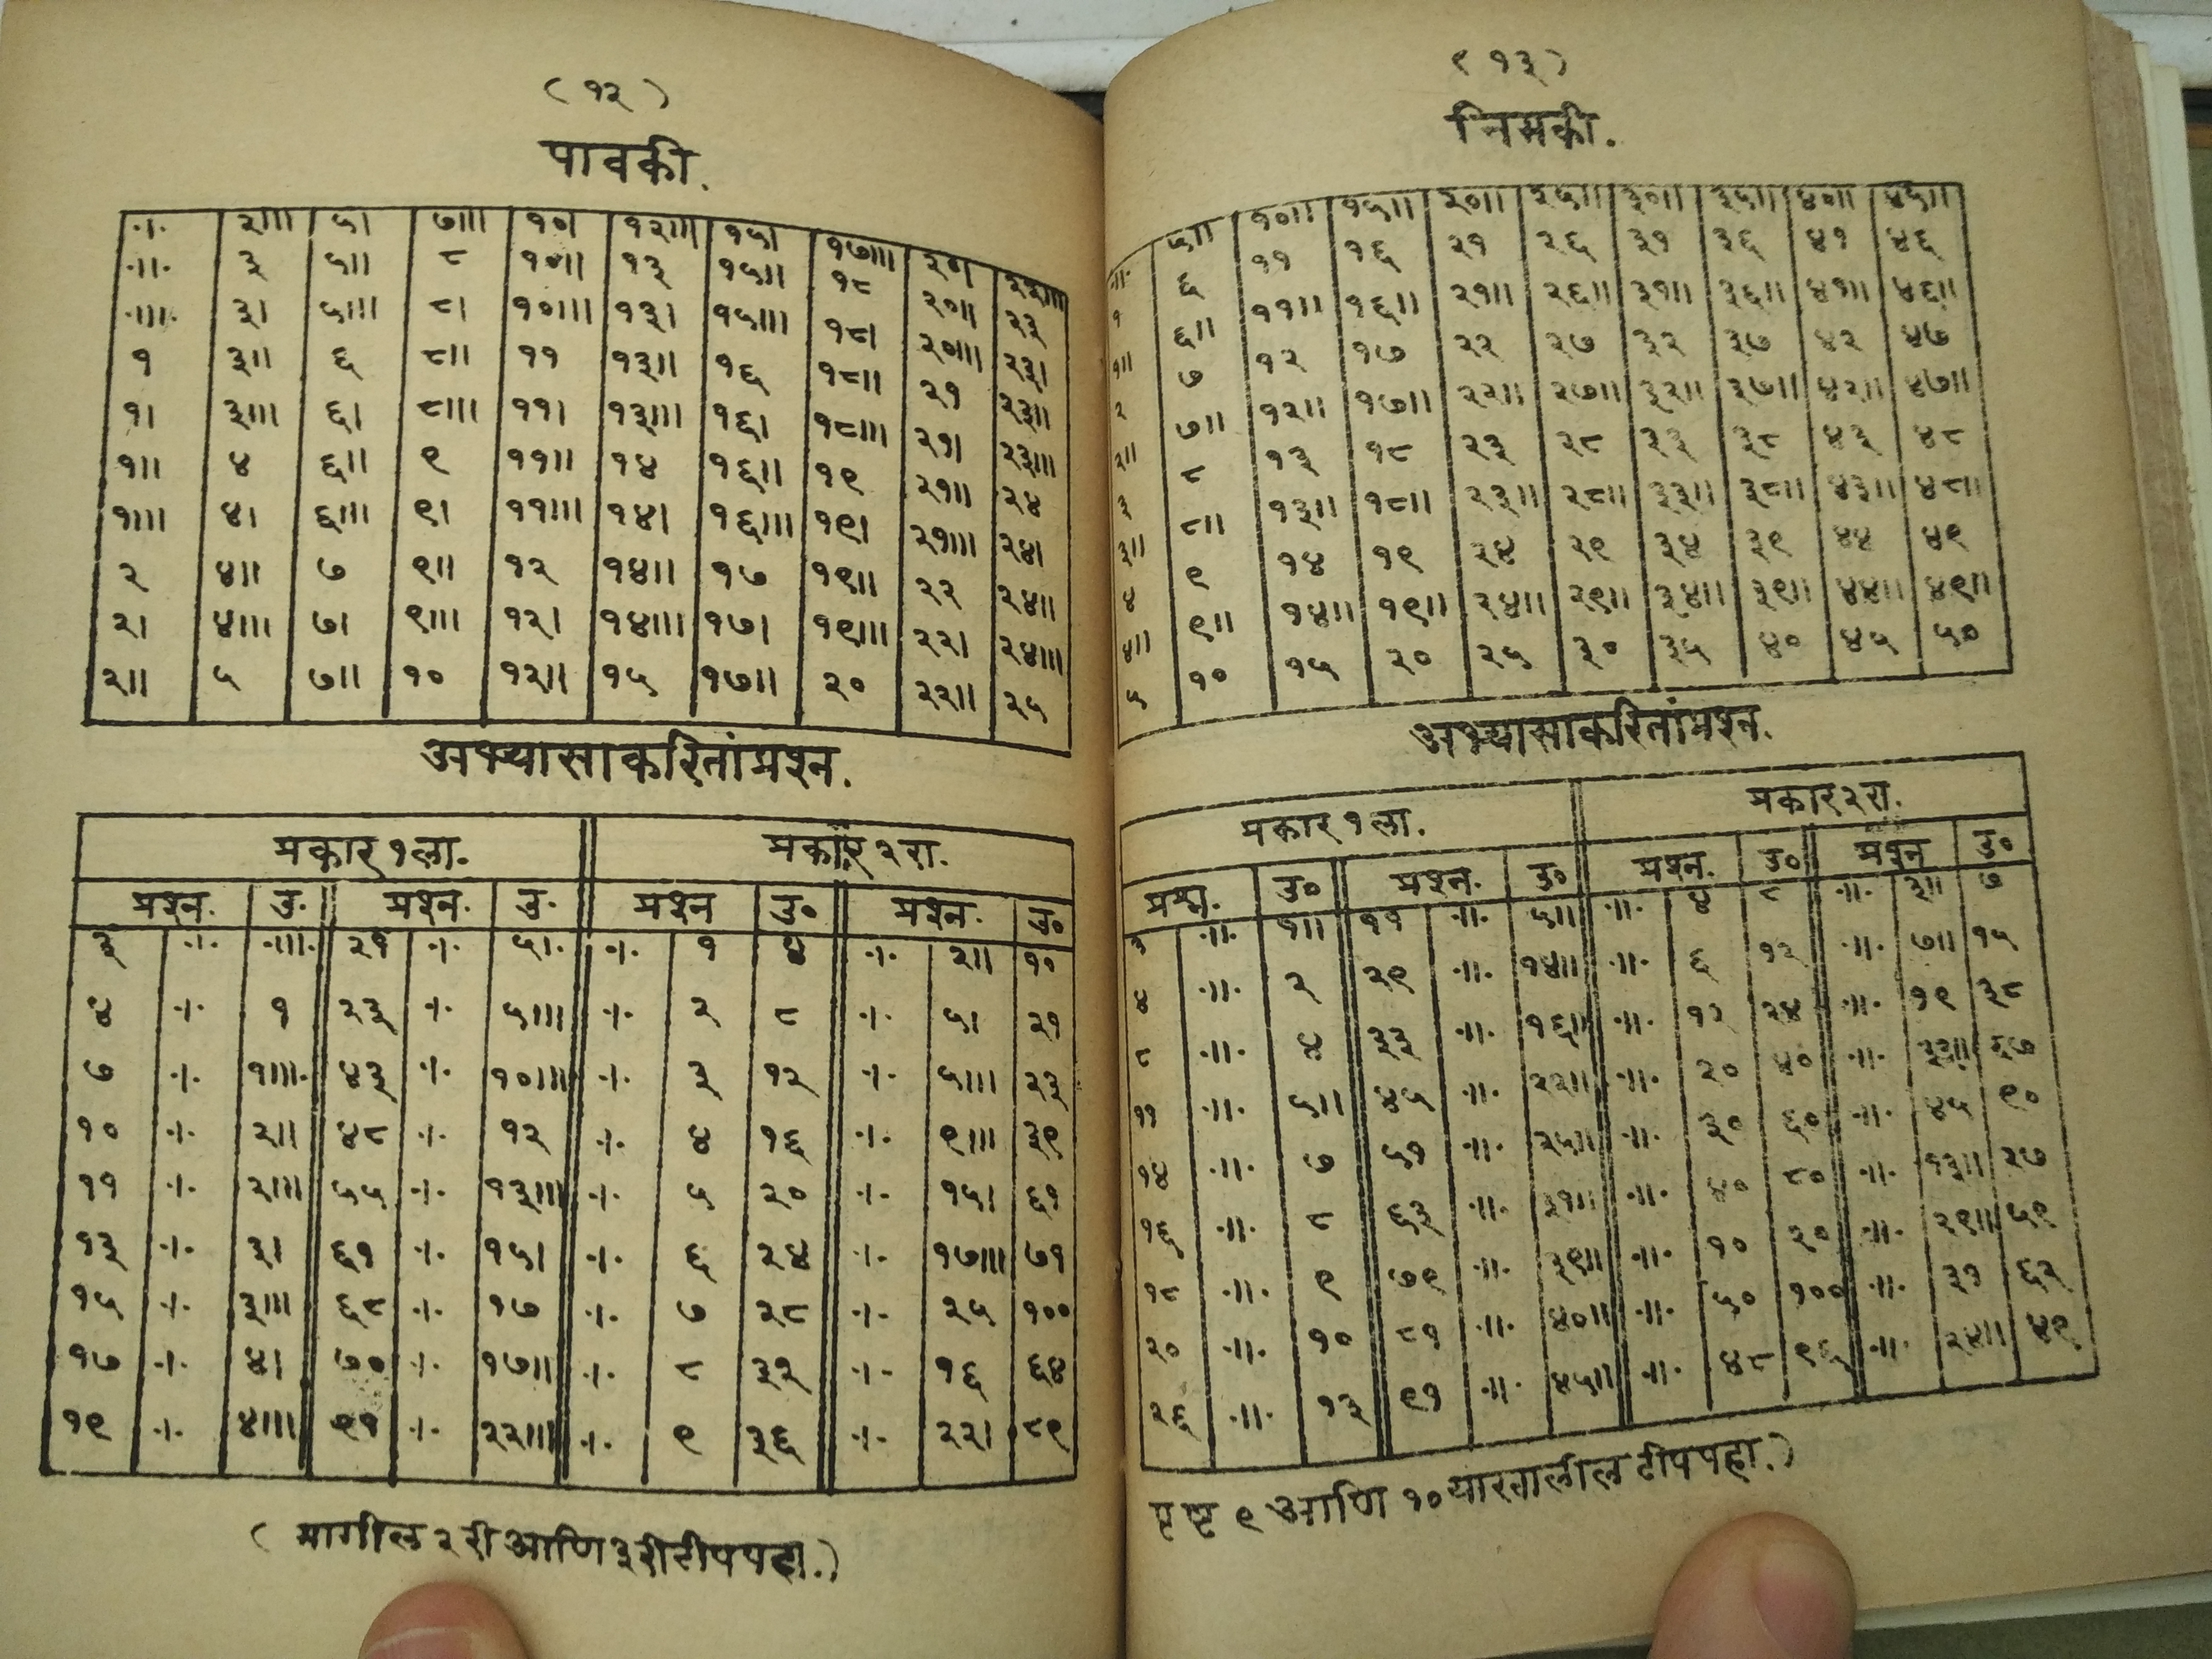 ( १२ )
पावकी.
।· २॥। ५। ७॥। १०। १२॥। १५। १७॥। २०। २२॥।
॥· ३ ५॥ ८ १०॥ १३ १५॥ १८ २०॥ २३
॥।· ३। ५॥। ८। १०॥। १३। १५॥। १८। २०॥। २३।
१ ३॥ ६ ८॥ ११ १३॥ १६ १८॥ २१ २३॥
१। ३॥। ६। ८॥। ११। १३॥। १६। १८॥। २१। २३॥।
१॥ ४ ६॥ ९ ११॥ १४ १६॥ १९ २१॥ २४
१॥। ४। ६॥। ९। ११॥। १४। १६॥। १९। २१॥। २४।
२ ४॥ ७ ९॥ १२ १४॥ १७ १९॥ २२ २४॥
२। ४॥। ७। ९॥। १२। १४॥। १७। १९॥। २२। २४॥।
२॥ ५ ७॥ १० १२॥ १५ १७॥ २० २२॥ २५
अभ्यासाकरितांप्रश्न.
प्रकार १ला. प्रकार २रा.
प्रश्न. उ. प्रश्न. उ. प्रश्न उ० प्रश्न. उ०
३ ·।· ·॥।· २१ ·।· ५। ·।· १ ४ ·।· २॥ १०
४ ·।· १ २३ ·।· ५॥। ·।· २ ८ ·।· ५। २१
७ ·।· १॥। ४३ ·।· १०॥। ·।· ३ १२ ·।· ५॥। २३
१० ·।· २॥ ४८ ·।· १२ ·।· ४ १६ ·।· ९॥। ३९
११ ·।· २॥। ५५ ·।· १३॥। ·।· ५ २० ·।· १५। ६१
१३ ·।· ३। ६१ ·।· १५। ·।· ६ २४ ·।· १७॥। ७१
१५ ·।· ३॥। ६८ ·।· १७ ·।· ७ २८ ·।· २५ १००
१७ ·।· ४। ७० ·।· १७॥ ·।· ८ ३२ ·।· १६ ६४
१९ ·।· ४॥। ९१ ·।· २२॥। ·।· ९ ३६ ·।· २२। ८९
( मागील २री आणि ३री टीप पहा.)
( १३ )
निमकी.
·॥· ५॥ १०॥ १५॥ २०॥ २५॥ ३०॥ ३५॥ ४०॥ ४५॥
१ ६ ११ १६ २१ २६ ३१ ३६ ४१ ४६
१॥ ६॥ ११॥ १६॥ २१॥ २६॥ ३१॥ ३६॥ ४१॥ ४६॥
२ ७ १२ १७ २२ २७ ३२ ३७ ४२ ४७
२॥ ७॥ १२॥ १७॥ २२॥ २७॥ ३२॥ ३७॥ ४२॥ ४७॥
३ ८ १३ १८ २३ २८ ३३ ३८ ४३ ४८
३॥ ८॥ १३॥ १८॥ २३॥ २८॥ ३३॥ ३८॥ ४३॥ ४८॥
४ ९ १४ १९ २४ २९ ३४ ३९ ४४ ४९
४॥ ९॥ १४॥ १९॥ २४॥ २९॥ ३४॥ ३९॥ ४४॥ ४९॥
५ १० १५ २० २५ ३० ३५ ४० ४५ ५०
अभ्यासाकरितांप्रश्न.
प्रकार १ला. प्रकार २रा.
प्रश्न. उ० प्रश्न. उ० प्रश्न. उ० प्रश्न उ०
३ ·॥· १॥ ११ ·॥· ५॥ ·॥· ४ ८ ·॥· ३॥ ७
४ ·॥· २ २९ ·॥· १४॥ ·॥· ६ १२ ·॥· ७॥ १५
८ ·॥· ४ ३३ ·॥· १६॥ ·॥· १२ २४ ·॥· १९ ३८
११ ·॥· ५॥ ४५ ·॥· २२॥ ·॥· २० ४० ·॥· ३३॥ ६७
१४ ·॥· ७ ५१ ·॥· २५॥ ·॥· ३० ६० ·॥· ४५ ९०
१६ ·॥· ८ ६३ ·॥· ३१॥ ·॥· ४० ८० ·॥· १३॥ २७
१८ ·॥· ९ ७९ ·॥· ३९॥ ·॥· १० २० ·॥· २९॥ ५९
२० ·॥· १० ८१ ·॥· ४०॥ ·॥· ५० १०० ·॥· ३१ ६२
२६ ·॥· १३ ९१ ·॥· ४५॥ ·॥· ४८ ९६ ·॥· २४॥ ४९
पृष्ट ९ आणि १० याखालील टीप पहा.)